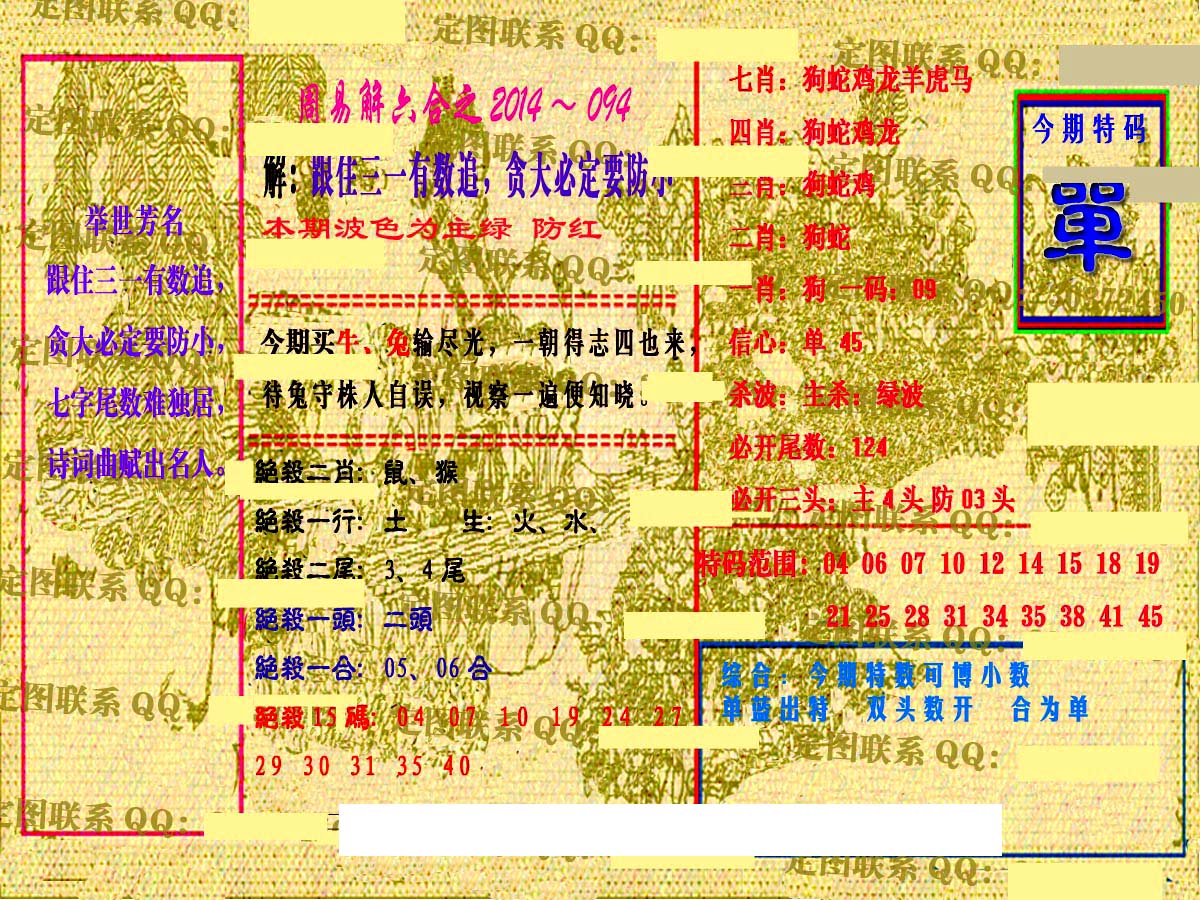 定图联系 QQ：
周易解六合之 2014～094
解：跟住三一有数追，贪大必定要防小
本期波色为主绿 防红
举世芳名
跟住三一有数追，
贪大必定要防小，
七字尾数难独居，
诗词曲赋出名人。
今期买牛、兔输尽光，一朝得志四也来，
待兔守株人自误，视察一遍便知晓。
絕殺二肖：鼠、猴
絕殺一行：土 生：火、水、
絕殺二尾：3、4尾
絕殺一頭：二頭
絕殺一合：05、06合
絕殺15碼：04 07 10 19 24 27
29 30 31 35 40
七肖：狗蛇鸡龙羊虎马
四肖：狗蛇鸡龙
三肖：狗蛇鸡
二肖：狗蛇
一肖：狗 一码：09
信心：单 45
杀波：主杀：绿波
必开尾数：124
必开三头：主4头防03头
今期特码
單
特码范围：04 06 07 10 12 14 15 18 19
21 25 28 31 34 35 38 41 45
综合：今期特数可博小数
单蓝出特 双头数开 合为单